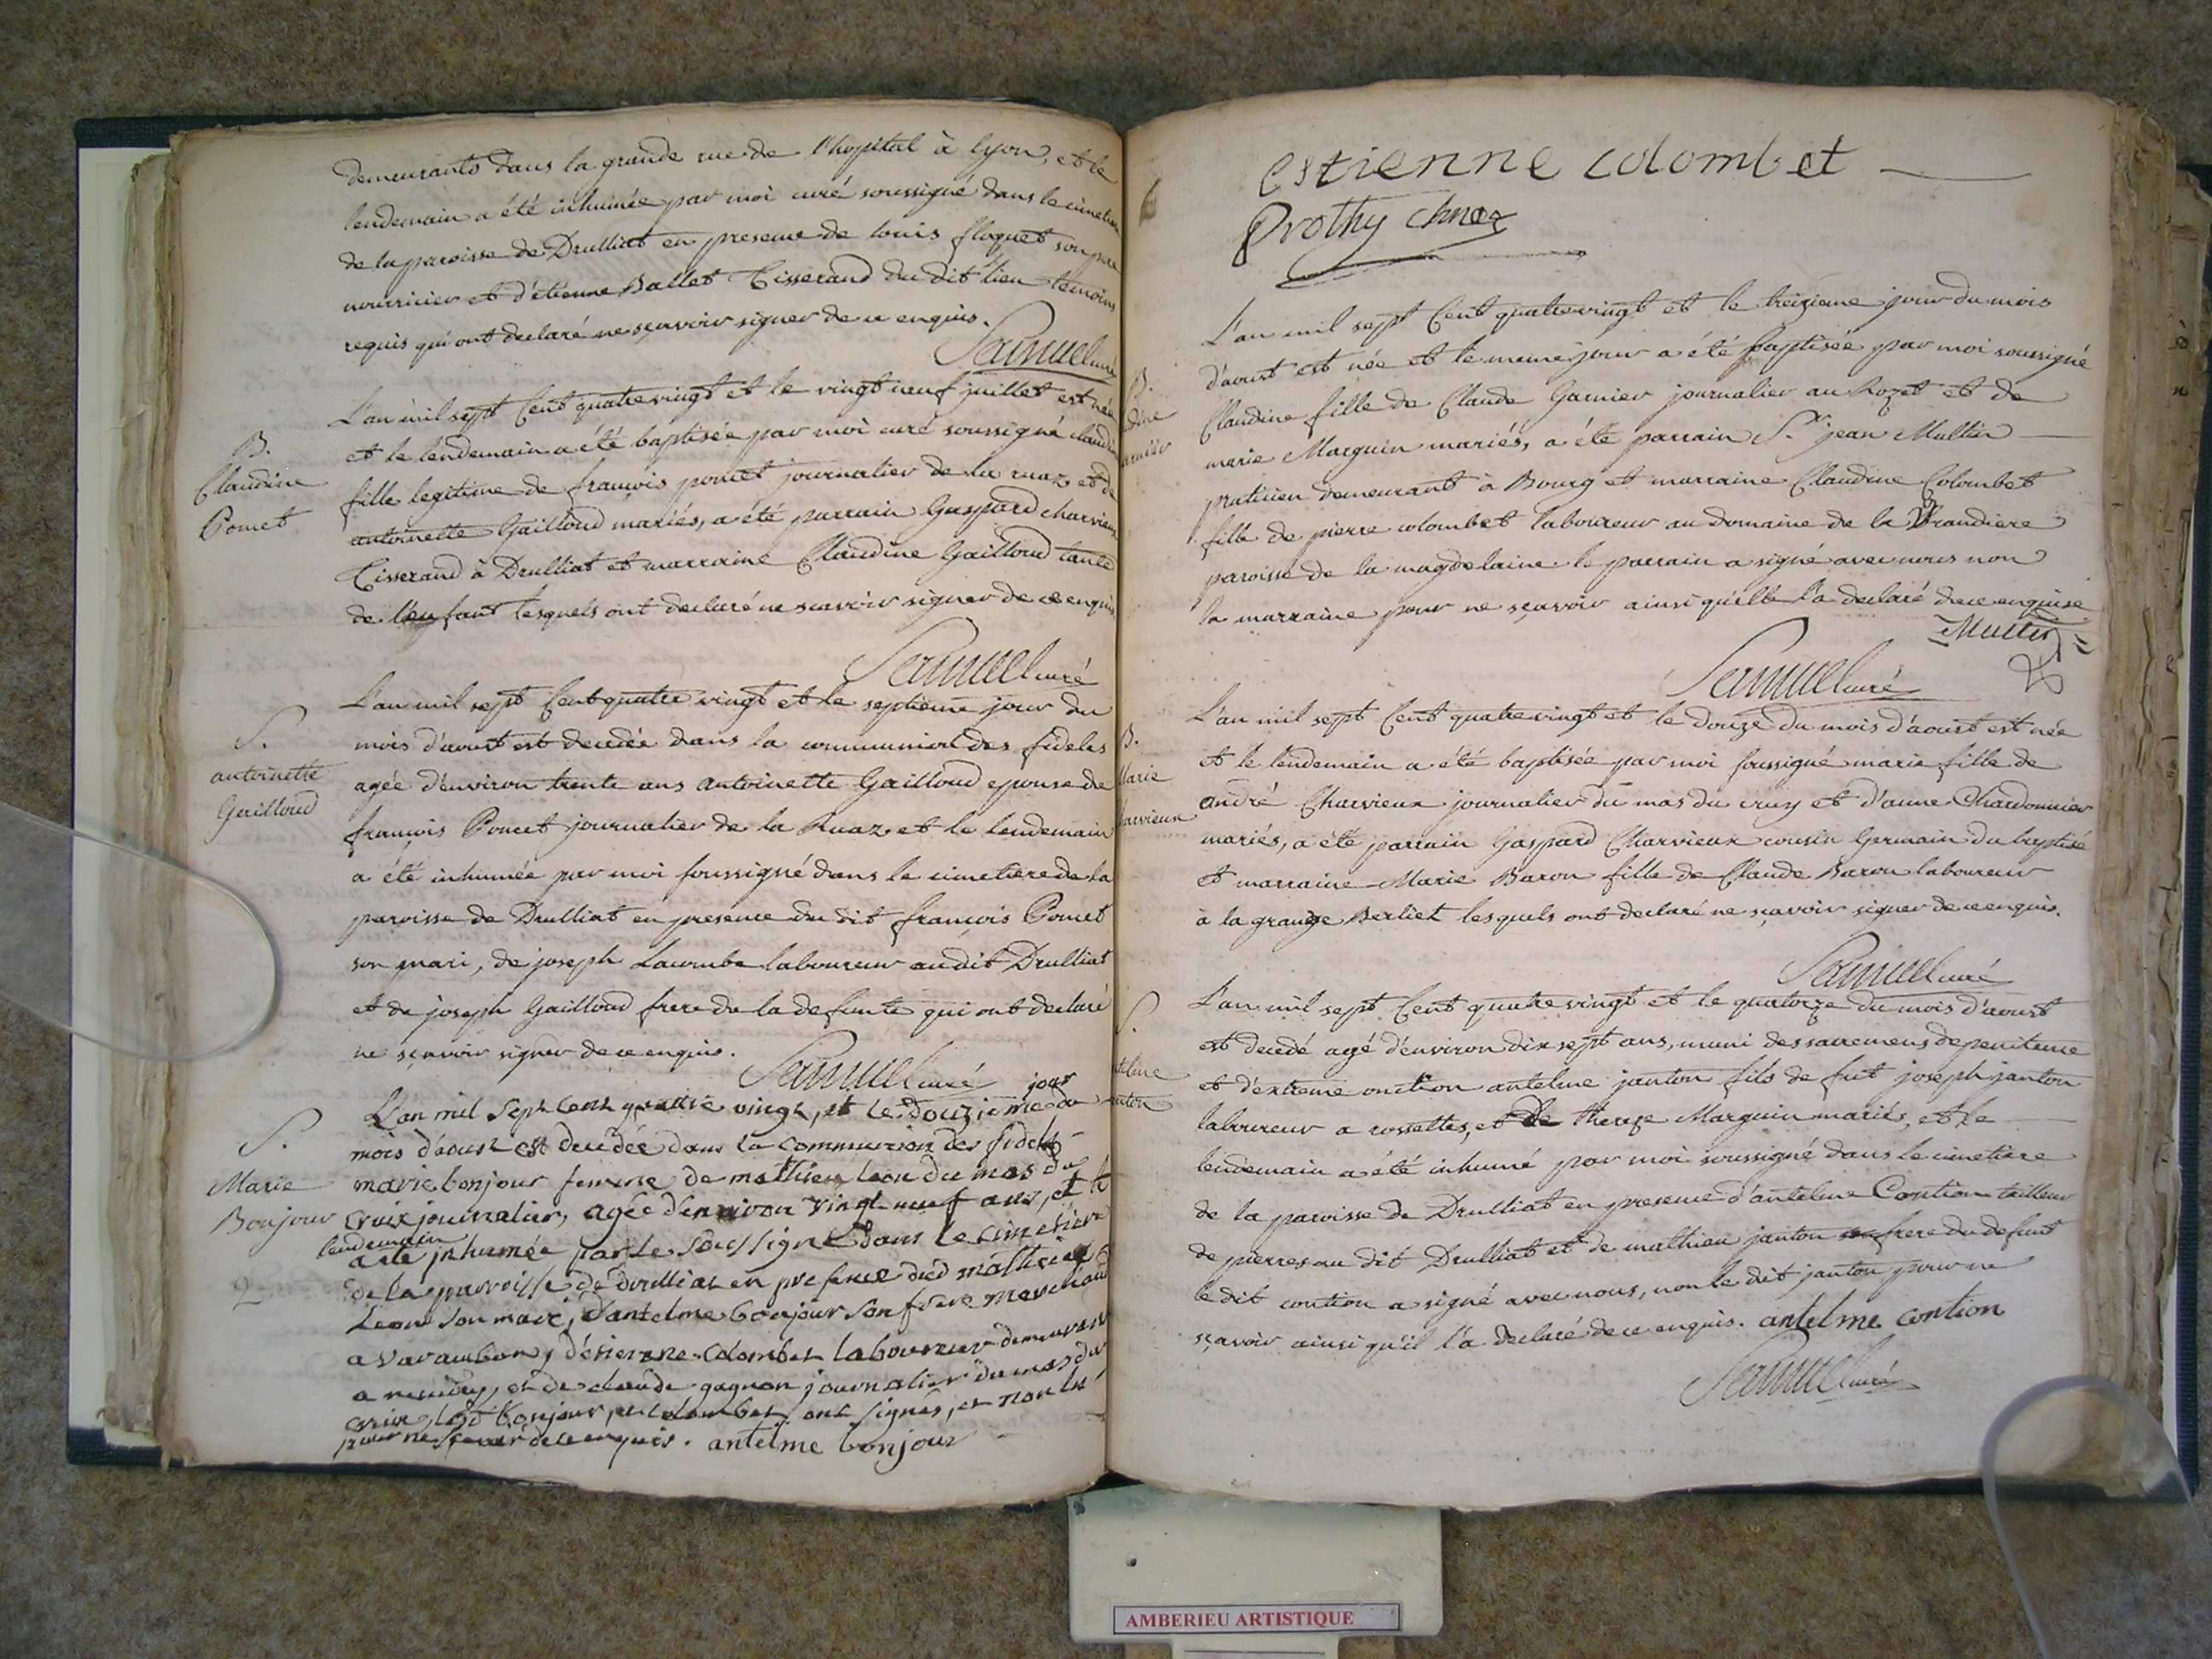 demeurants dans la grande rue de l'hopital à lyon, et le
lendemain a été inhumée par moi curé soussigné dans le cimetiere
de la paroisse de Drulliat en presence de louis floquet son pere
nourricier et d'étienne Ballet Tisserand du dit lieu temoins
requis qui ont declaré ne sçavoir signer de ce enquis.
Samuel curé
B.
Claudine
Poncet
L'an mil sept Cent quatre vingt et le vingt neuf juillet est née
et le lendemain a été baptisée par moi curé soussigné claudine
fille legitime de françois poncet journalier de la ruaz et de
antoinette Gailloud mariés, a été parrain Gaspard charvieux
Tisserand à Drulliat et marraine Claudine Gailloud tante
de l'enfant lesquels ont declaré ne scavoir signer de ce enquis
Samuel curé
S.
antoinette
Gailloud
L'an mil sept Cent quatre vingt et le septieme jour du
mois d'aoust est decedée dans la communion des fideles
agée d'environ trente ans antoinette Gailloud epouse de
françois Poncet journalier de la Ruaz et le lendemain
a été inhumée par moi soussigné dans le cimetiere de la
paroisse de Drulliat en presence du dit françois Poncet
son mari, de joseph Lacombe laboureur au dit Drulliat
et de joseph Gailloud frere de la defunte qui ont declaré
ne sçavoir signer de ce enquis.
Samuel curé
S.
Marie
Bonjour
2
jour
L'an mil Sept Cent quattre vingt, et le douzieme du
mois d'aoust est decedée dans la communion des fideles
marie bonjour femme de mathieu Leon du mas du
Croix journalier, agée d'environ vingt neuf ans, et le
lendemain
a ete inhumée par le soussigné dans le cimetiere
de la parroisse de drulliat en presence dud mathieu
Leon son mari, d'antelme bonjour son frere marchand
a varambon, d'etienne Colombet laboureur demeurant
a, et de claude gagnon journalier du mas du
croix, lesd bonjour, et colombet ont signés, et non les
pour ne scavoir de ce enquis. antelme bonjour
estienne colombet
Prothy
B.
dine
arnier
L'an mil sept Cent quatre vingt et le treizieme jour du mois
d'aoust est née et le meme jour a été baptisée par moi soussigné
Claudine fille de Claude Garnier journalier au Rozet et de
marie Marguin mariés, a été parrain Sr. jean Multin
praticien demeurant à Bourg et marraine Claudine Colombet
fille de pierre colombet laboureur au domaine de la Brandiere
paroisse de la magdelaine le parrain a signé avec nous non
la marraine pour ne sçavoir ainsi qu'elle l'a declaré de ce enquise
Multin
Samuel curé
B.
Marie
harvieux
L'an mil sept Cent quatre vingt et le douze du mois d'aoust est née
et le lendemain a été baptisée par moi soussigné marie fille de
andré Charvieux journalier du mas du cruy et d'anne Chardonnier
mariés, a été parrain Gaspard Charvieux cousin Germain du baptisé
et marraine Marie Baron fille de Claude Baron laboureur
à la grange Berliet lesquels ont declaré ne sçavoir signer de ce enquis.
Samuel curé
S.
ntelme
anton
L'an mil sept Cent quatre vingt et le quatorze du mois d'aoust
est decedé agé d'environ dix sept ans, muni des sacremens de penitence
et d'extreme onction antelme janton fils de feit joseph janton
laboureur a rossettes, et de thereze Marguin mariés, et le
lendemain a été inhumé par moi soussigné dans le cimetiere
de la paroisse de Drulliat en presence d'antelme Contion tailleur
de pierres au dit Drulliat et de mathieu janton frere du defunt
le dit contion a signé avec nous, non le dit janton pour ne
sçavoir ainsi qu'il l'a declaré de ce enquis. antelme contion
Samuel curé
AMBERIEU ARTISTIQUE